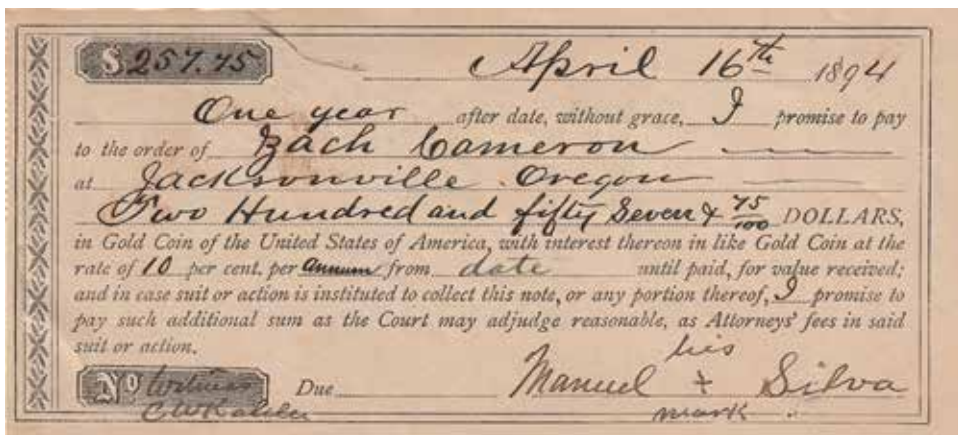 $257.75
April 16th 1894
One year after date, without grace, I promise to pay
to the order of Zach Cameron
at Jacksonville Oregon
Two Hundred and fifty Seven & 75/100 DOLLARS,
in Gold Coin of the United States of America, with interest thereon in like Gold Coin at the
rate of 10 per cent. per annum from date until paid, for value received;
and in case suit or action is instituted to collect this note, or any portion thereof, I promise to
pay such additional sum as the Court may adjudge reasonable, as Attorneys' fees in said
suit or action.
his
No Witness Due Manuel + Silva
C W Kahler mark